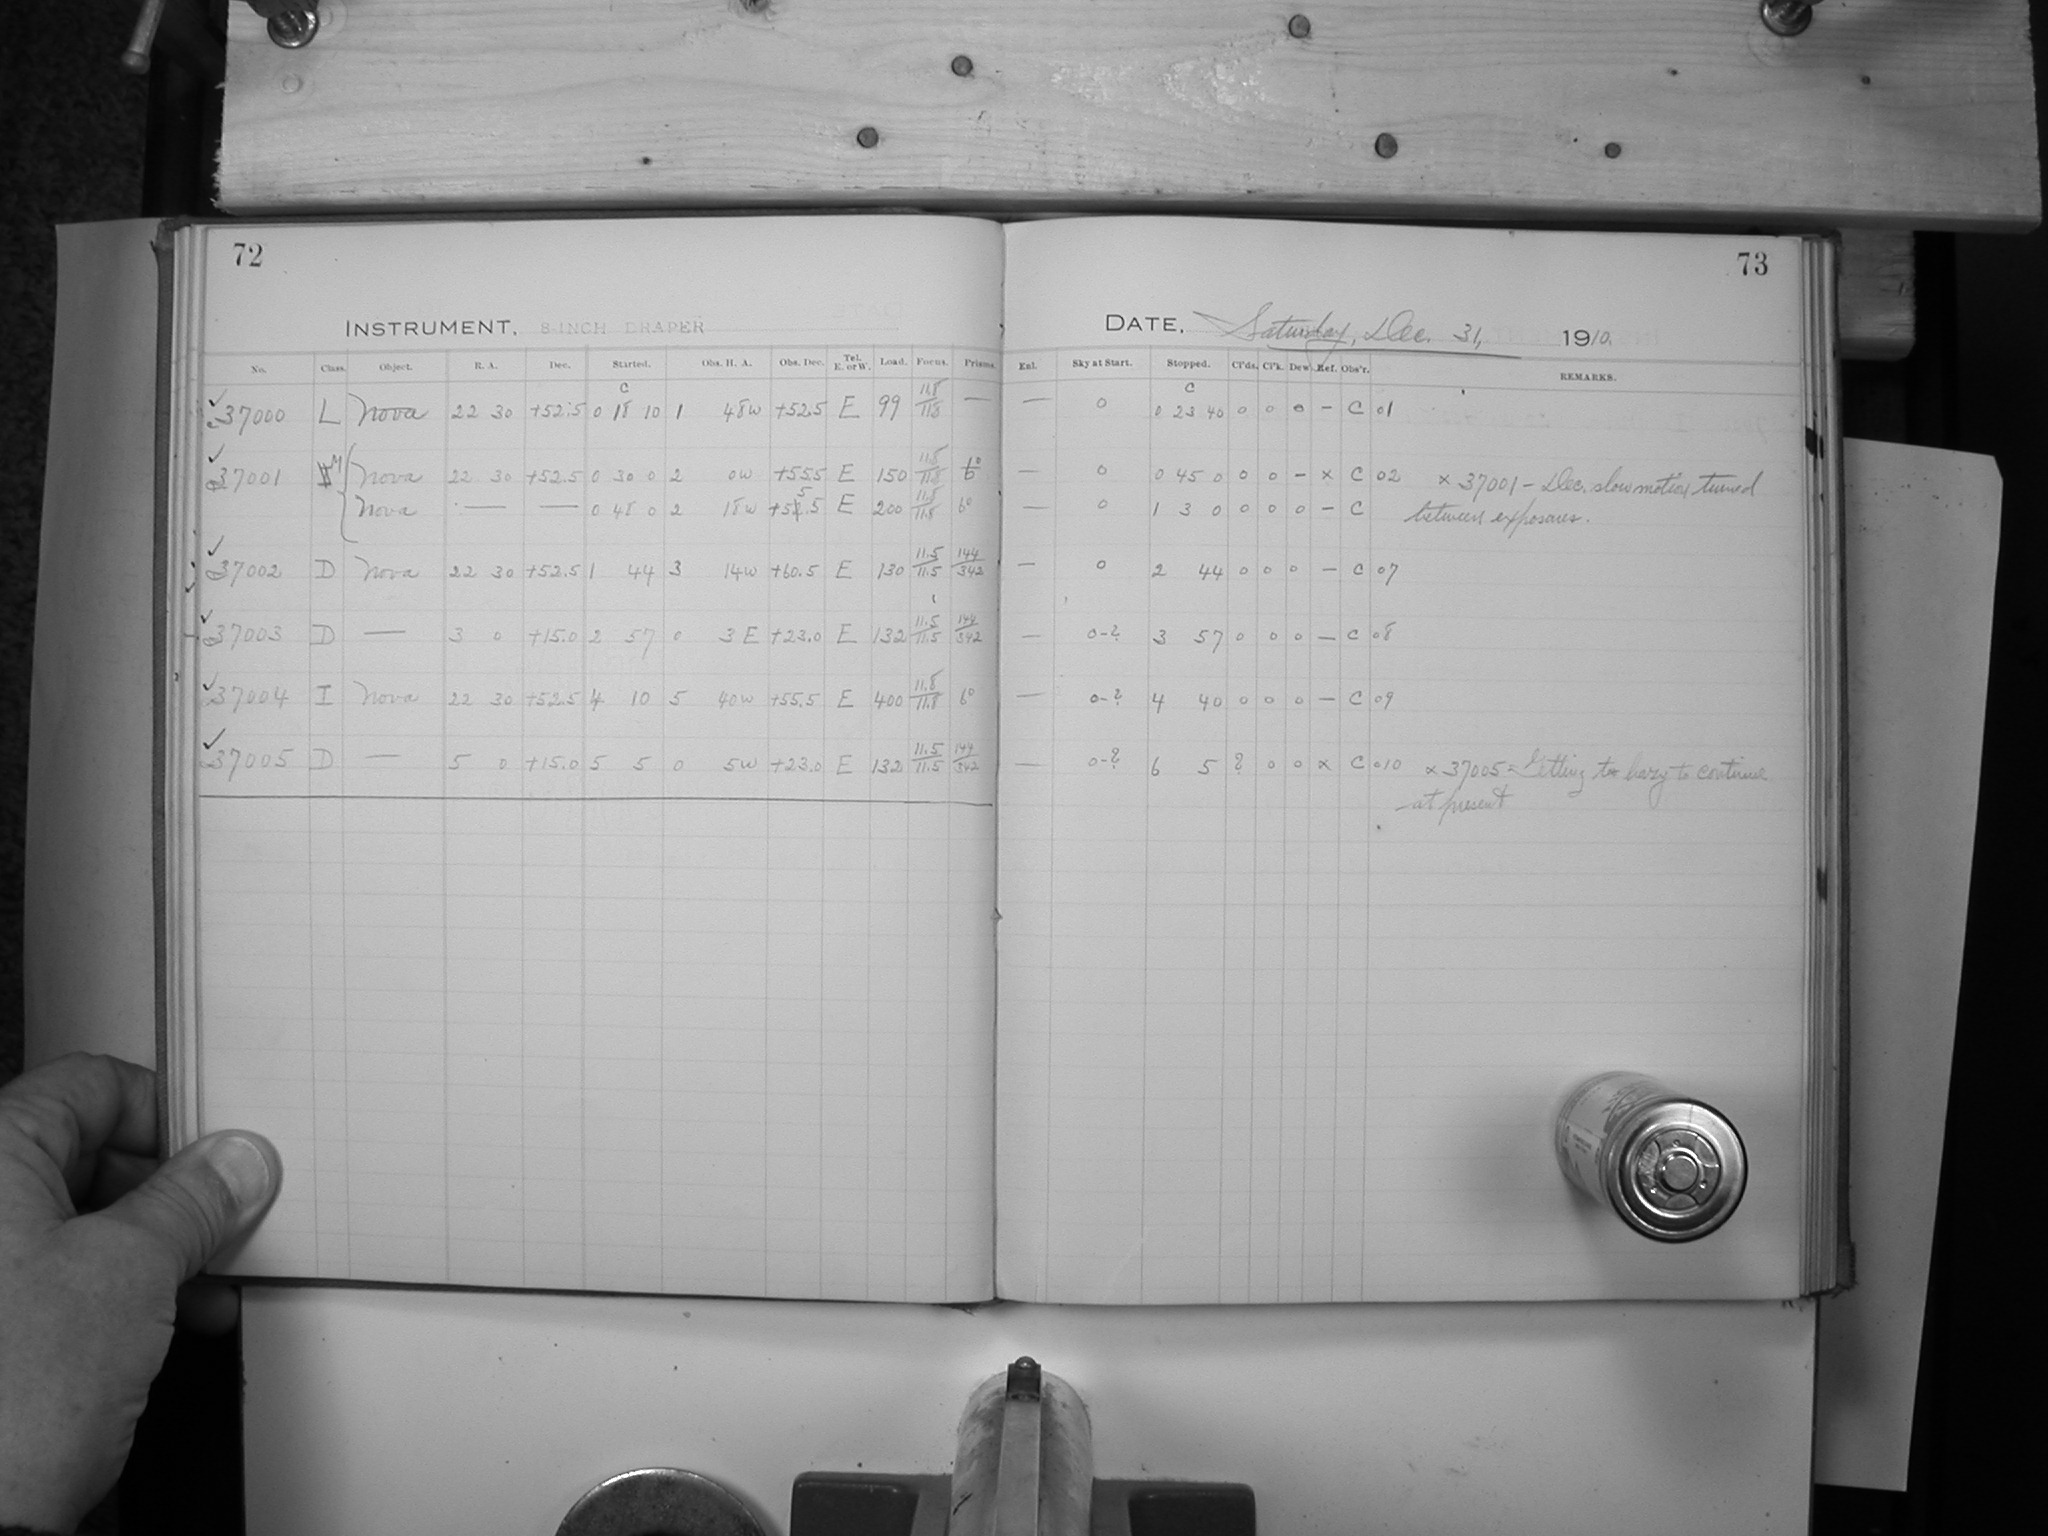 72
73
INSTRUMENT, 8-INCH DRAPER
DATE, Saturday, Dec. 31, 1910
No. Class. Object. R. A. Dec. Started. Obs. H. A. Obs. Dec. Tel. E. or W. Load. Focus. Prisms. Enl. Sky at Start. Stopped. Cl'ds. Cl'k. Dew. Ref. Obs'r. REMARKS.
C C
37000 L Nova 22 30 +52.5 0 18 10 1 48w +52.5 E 99 11.8/11.8 — — 0 0 23 40 0 0 0 — C 01
37001 Nova 22 30 +52.5 0 30 0 2 0w +55.5 E 150 11.8/11.8 6° — 0 0 45 0 0 0 — x C 02 x 37001 - Dec. slow motion turned
Nova — — 0 48 0 2 18w E 200 11.8/11.8 6° — 0 1 3 0 0 0 0 — C between exposures.
37002 D Nova 22 30 +52.5 1 44 3 14w +60.5 E 130 11.5/11.5 144/342 — 0 2 44 0 0 0 — C 07
37003 D — 3 0 +15.0 2 57 0 3 E +23.0 E 132 11.5/11.5 144/342 — 0-? 3 57 0 0 0 — C 08
37004 I Nova 22 30 +52.5 4 10 5 40w +55.5 E 400 11.8/11.8 6° — 0-? 4 40 0 0 0 — C 09
37005 D — 5 0 +15.0 5 5 0 5w +23.0 E 132 11.5/11.5 144/342 — 0-? 6 5 ? 0 0 x C 010 x 37005 - Getting too hazy to continue
at present